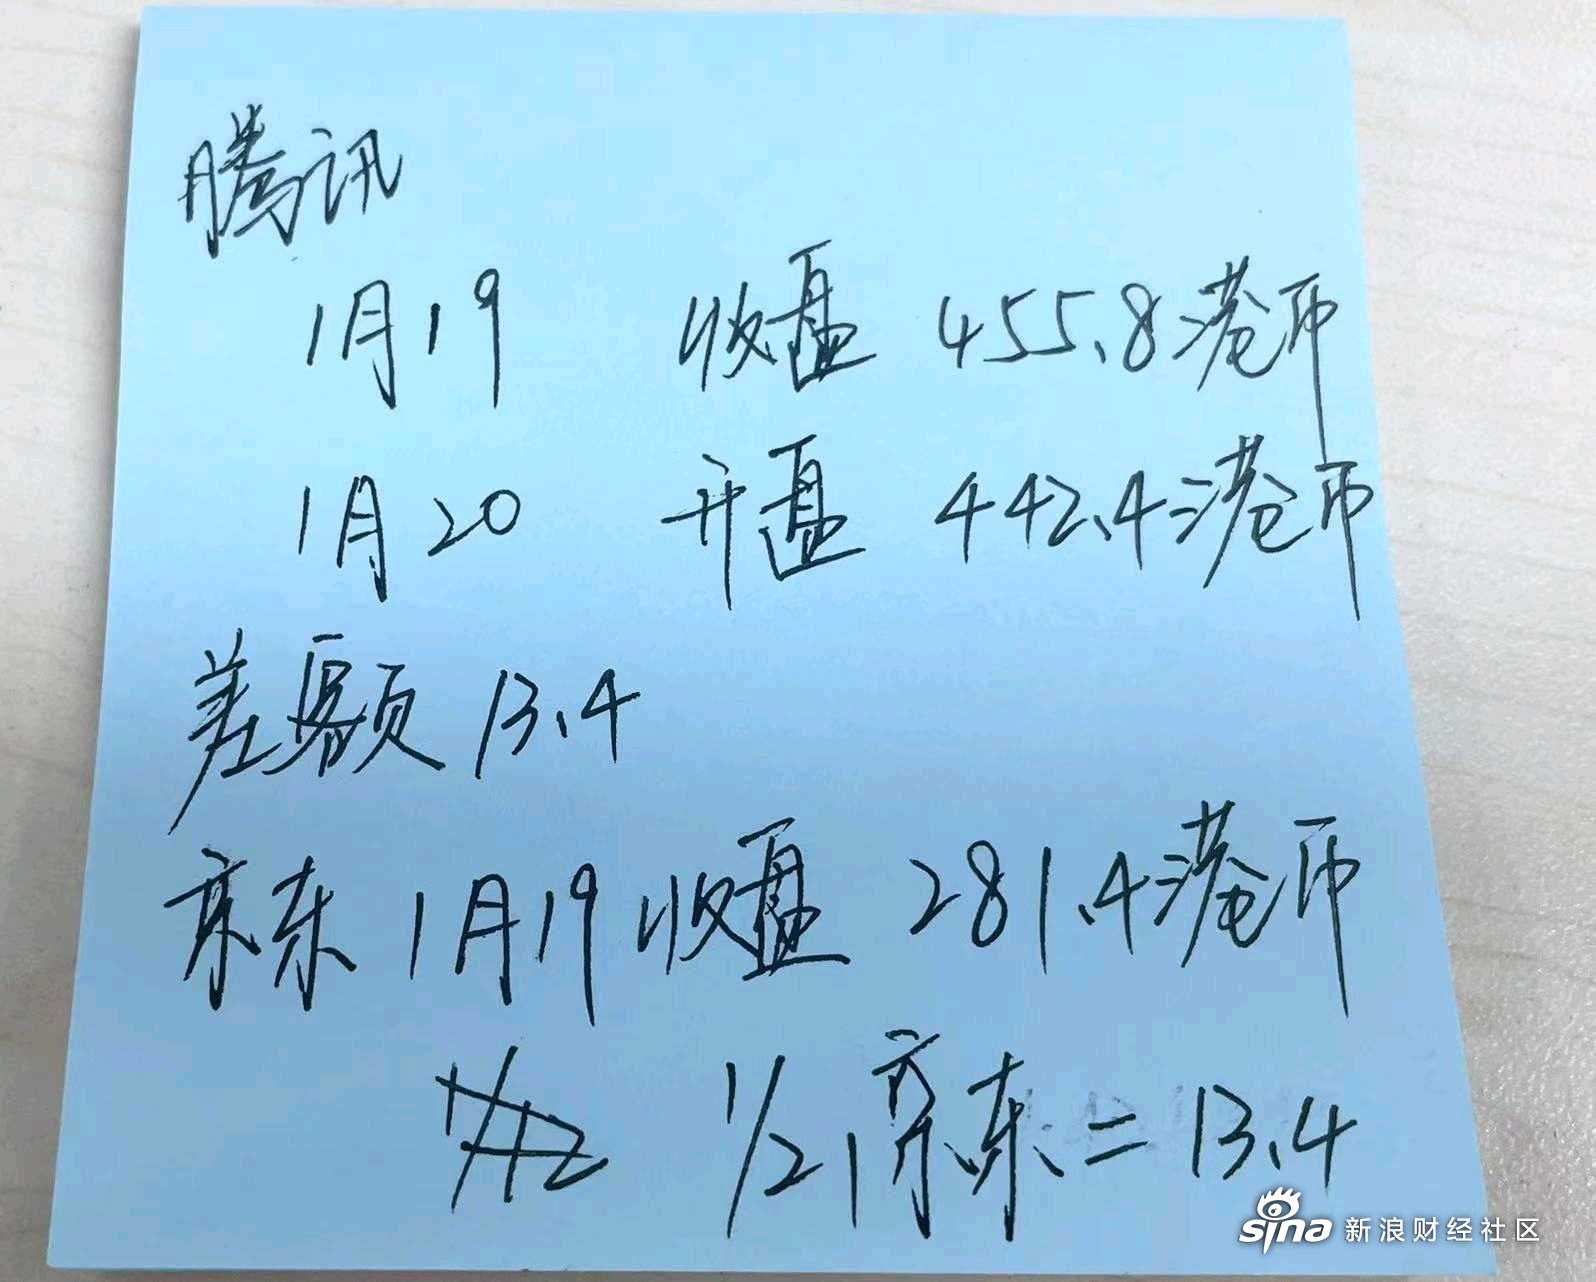 腾讯
1月19 收盘 455.8港币
1月20 开盘 442.4港币
差额 13.4
京东 1月19 收盘 281.4港币
1/12 1/21京东=13.4
sina 新浪财经社区